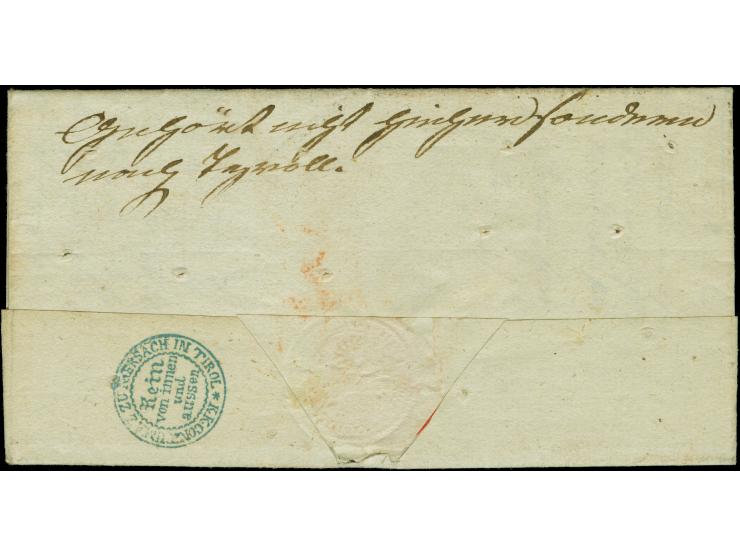 Gehört nicht hieher sondern
nach Tyroll.
ZU ARBERSACH IN TIROL * K.K. CONT
Rein
von innen
und
aussen